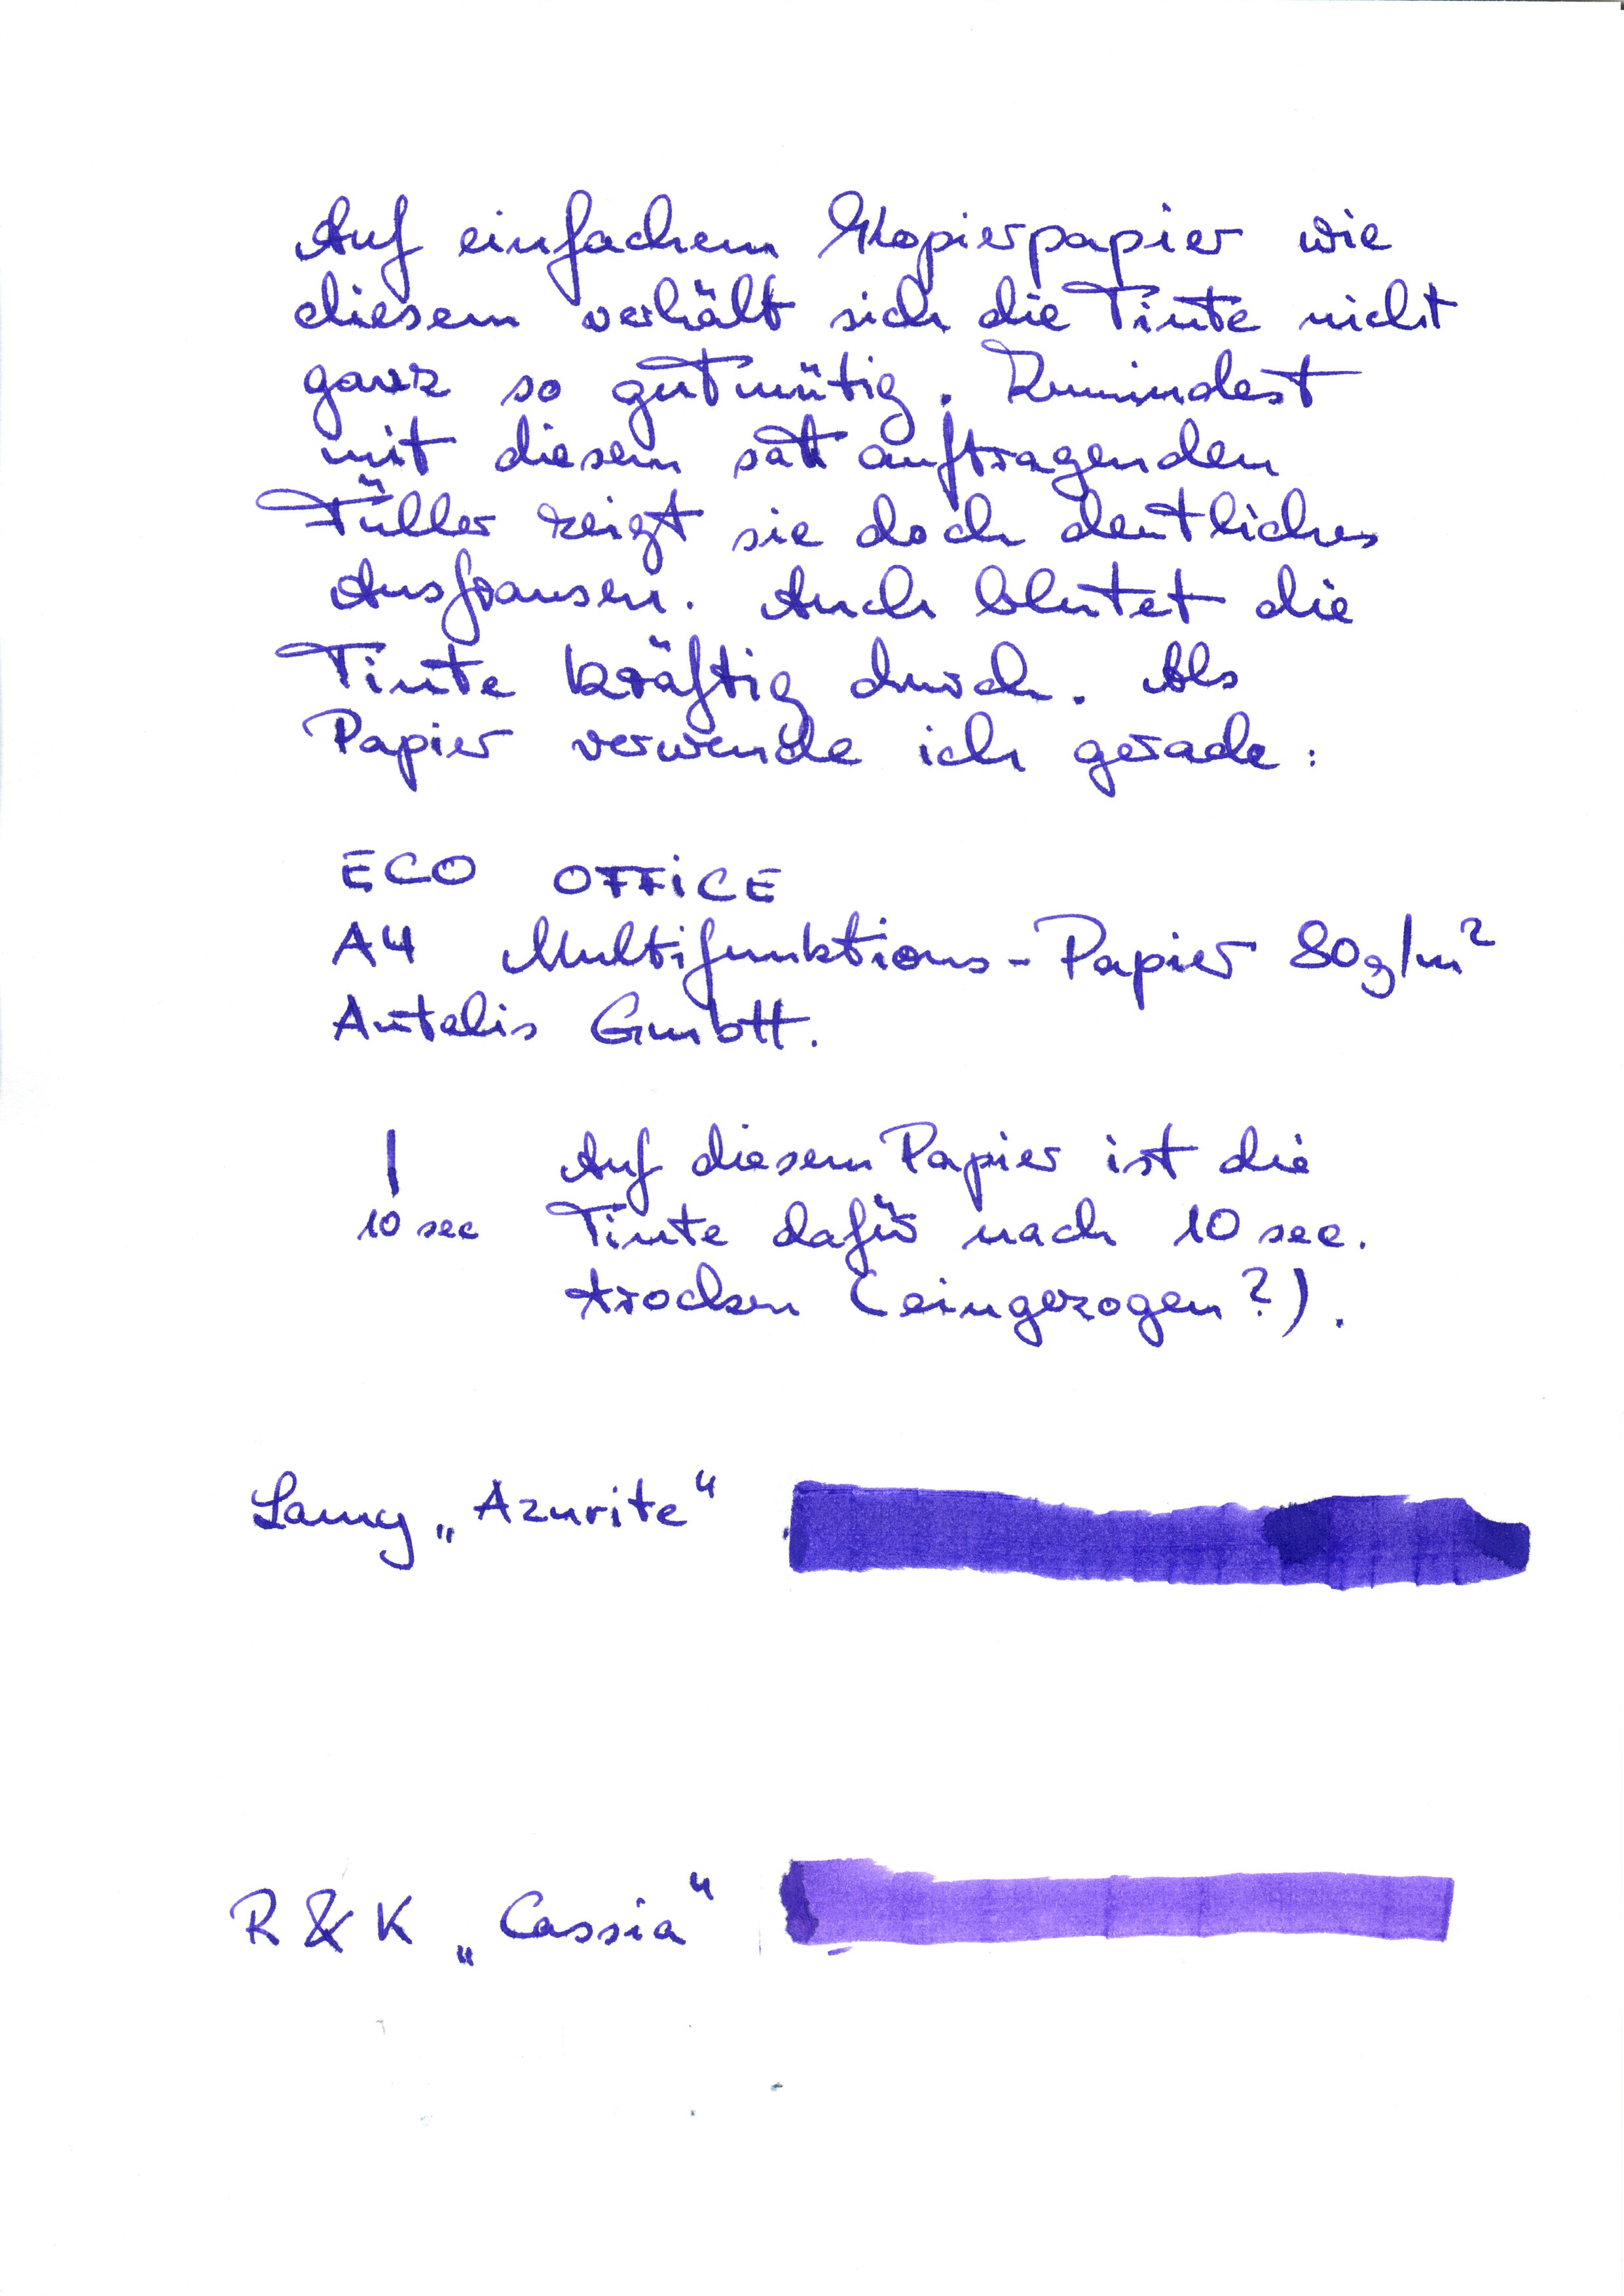 Auf einfachem Kopierpapier wie
diesem verhält sich die Tinte nicht
ganz so gutmütig. Zumindest
mit diesem satt auftragenden
Füller zeigt sie doch deutliches
Ausfransen. Auch blutet die
Tinte kräftig durch. Als
Papier verwende ich gerade:
ECO OFFiCE
A4 Multifunktions-Papier 80g/m²
Antalis GmbH.
Auf diesem Papier ist die
10 sec Tinte dafür nach 10 sec.
trocken (eingezogen?).
Lamy „Azurite“
R & K „Cassia“